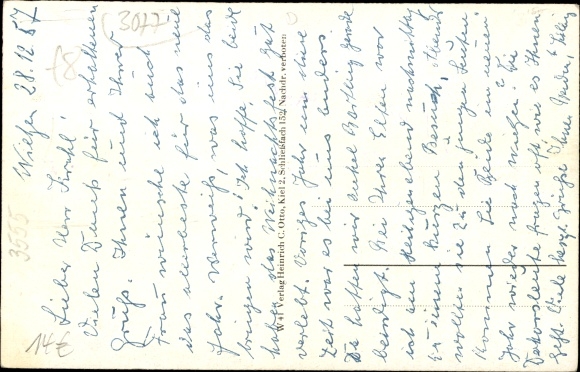 Wieffen 28.12.57
3077
Lieber Herr Strahl!
Vielen Dank für erhaltenen
Gruß. Ihnen und Ihrer
Frau wünsche ich auch
das allerbeste für das neue
Jahr. Wer weiß was uns das
bringen wird! Ich hoffe Sie beide
haben das Weihnachtsfest gut
verlebt. Voriges Jahr um diese
Zeit war es bei uns anders.
Da hatten wir Onkel gerade
beerdigt. Bei Ihren Eltern war
ich am Heiligabend nachmittag
zu einem kurzen Besuch, Abends
wollten sie zu den jungen Leuten.
Kommen Sie Beide im neuen
Jahr wieder nach ? Die
fragen oft wie es Ihnen
geht. Viele herzl. Grüße Ihnen Beiden,
W 41 Verlag Heinrich C. Otto, Kiel 2, Schließfach 152 Nachdr. verboten
3555
14€